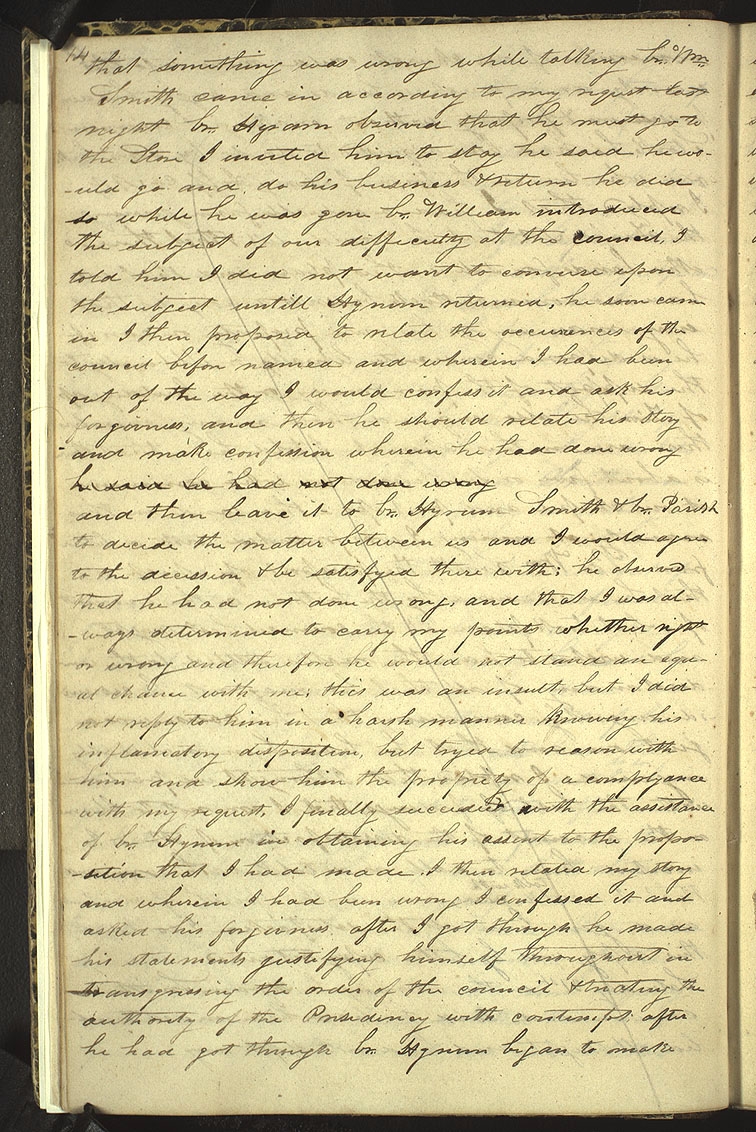 14
that something was wrong while talking br. Wm
Smith came in according to my request last
night br. Hyram observed that he must go to
the Store I invited him to stay he said he wo-
-uld go and do his business & return he did
so while he was gone br. William introduced
the subject of our difficulty at the council, I
told him I did not want to converse upon
the subject untill Hyrum returned, he soon cam
in I then proposed to relate the occurences of the
council before named and wherein I had been
out of the way I would confess it and ask his
forgivness, and then he should relate his story
and make confession wherein he had done wrong
he said he had not done wrong
and then leave it to br. Hyrum Smith & br. Parish
to decide the matter between us and I would agree
to the decission & be satisfyed there with; he observed
that he had not done wrong, and that I was al-
-ways determined to carry my points whether right
or wrong and therefore he would not stand an equ-
al chance with me; this was an insult, but I did
not reply to him in a harsh manner knowing his
inflamatory disposition, but tryed to reason with
him and show him the propriety of a complyance
with my request, I finally succeeded with the assistance
of br. Hyrum in obtaining his assent to the propo-
-sition that I had made. I then related my story
and wherein I had been wrong I confessed it and
asked his forgivness after I got through he made
his statements justifying himself throughout in
transgressing the order of the council & treating the
authority of the Presidency with contempt; after
he had got through br. Hyrum began to make